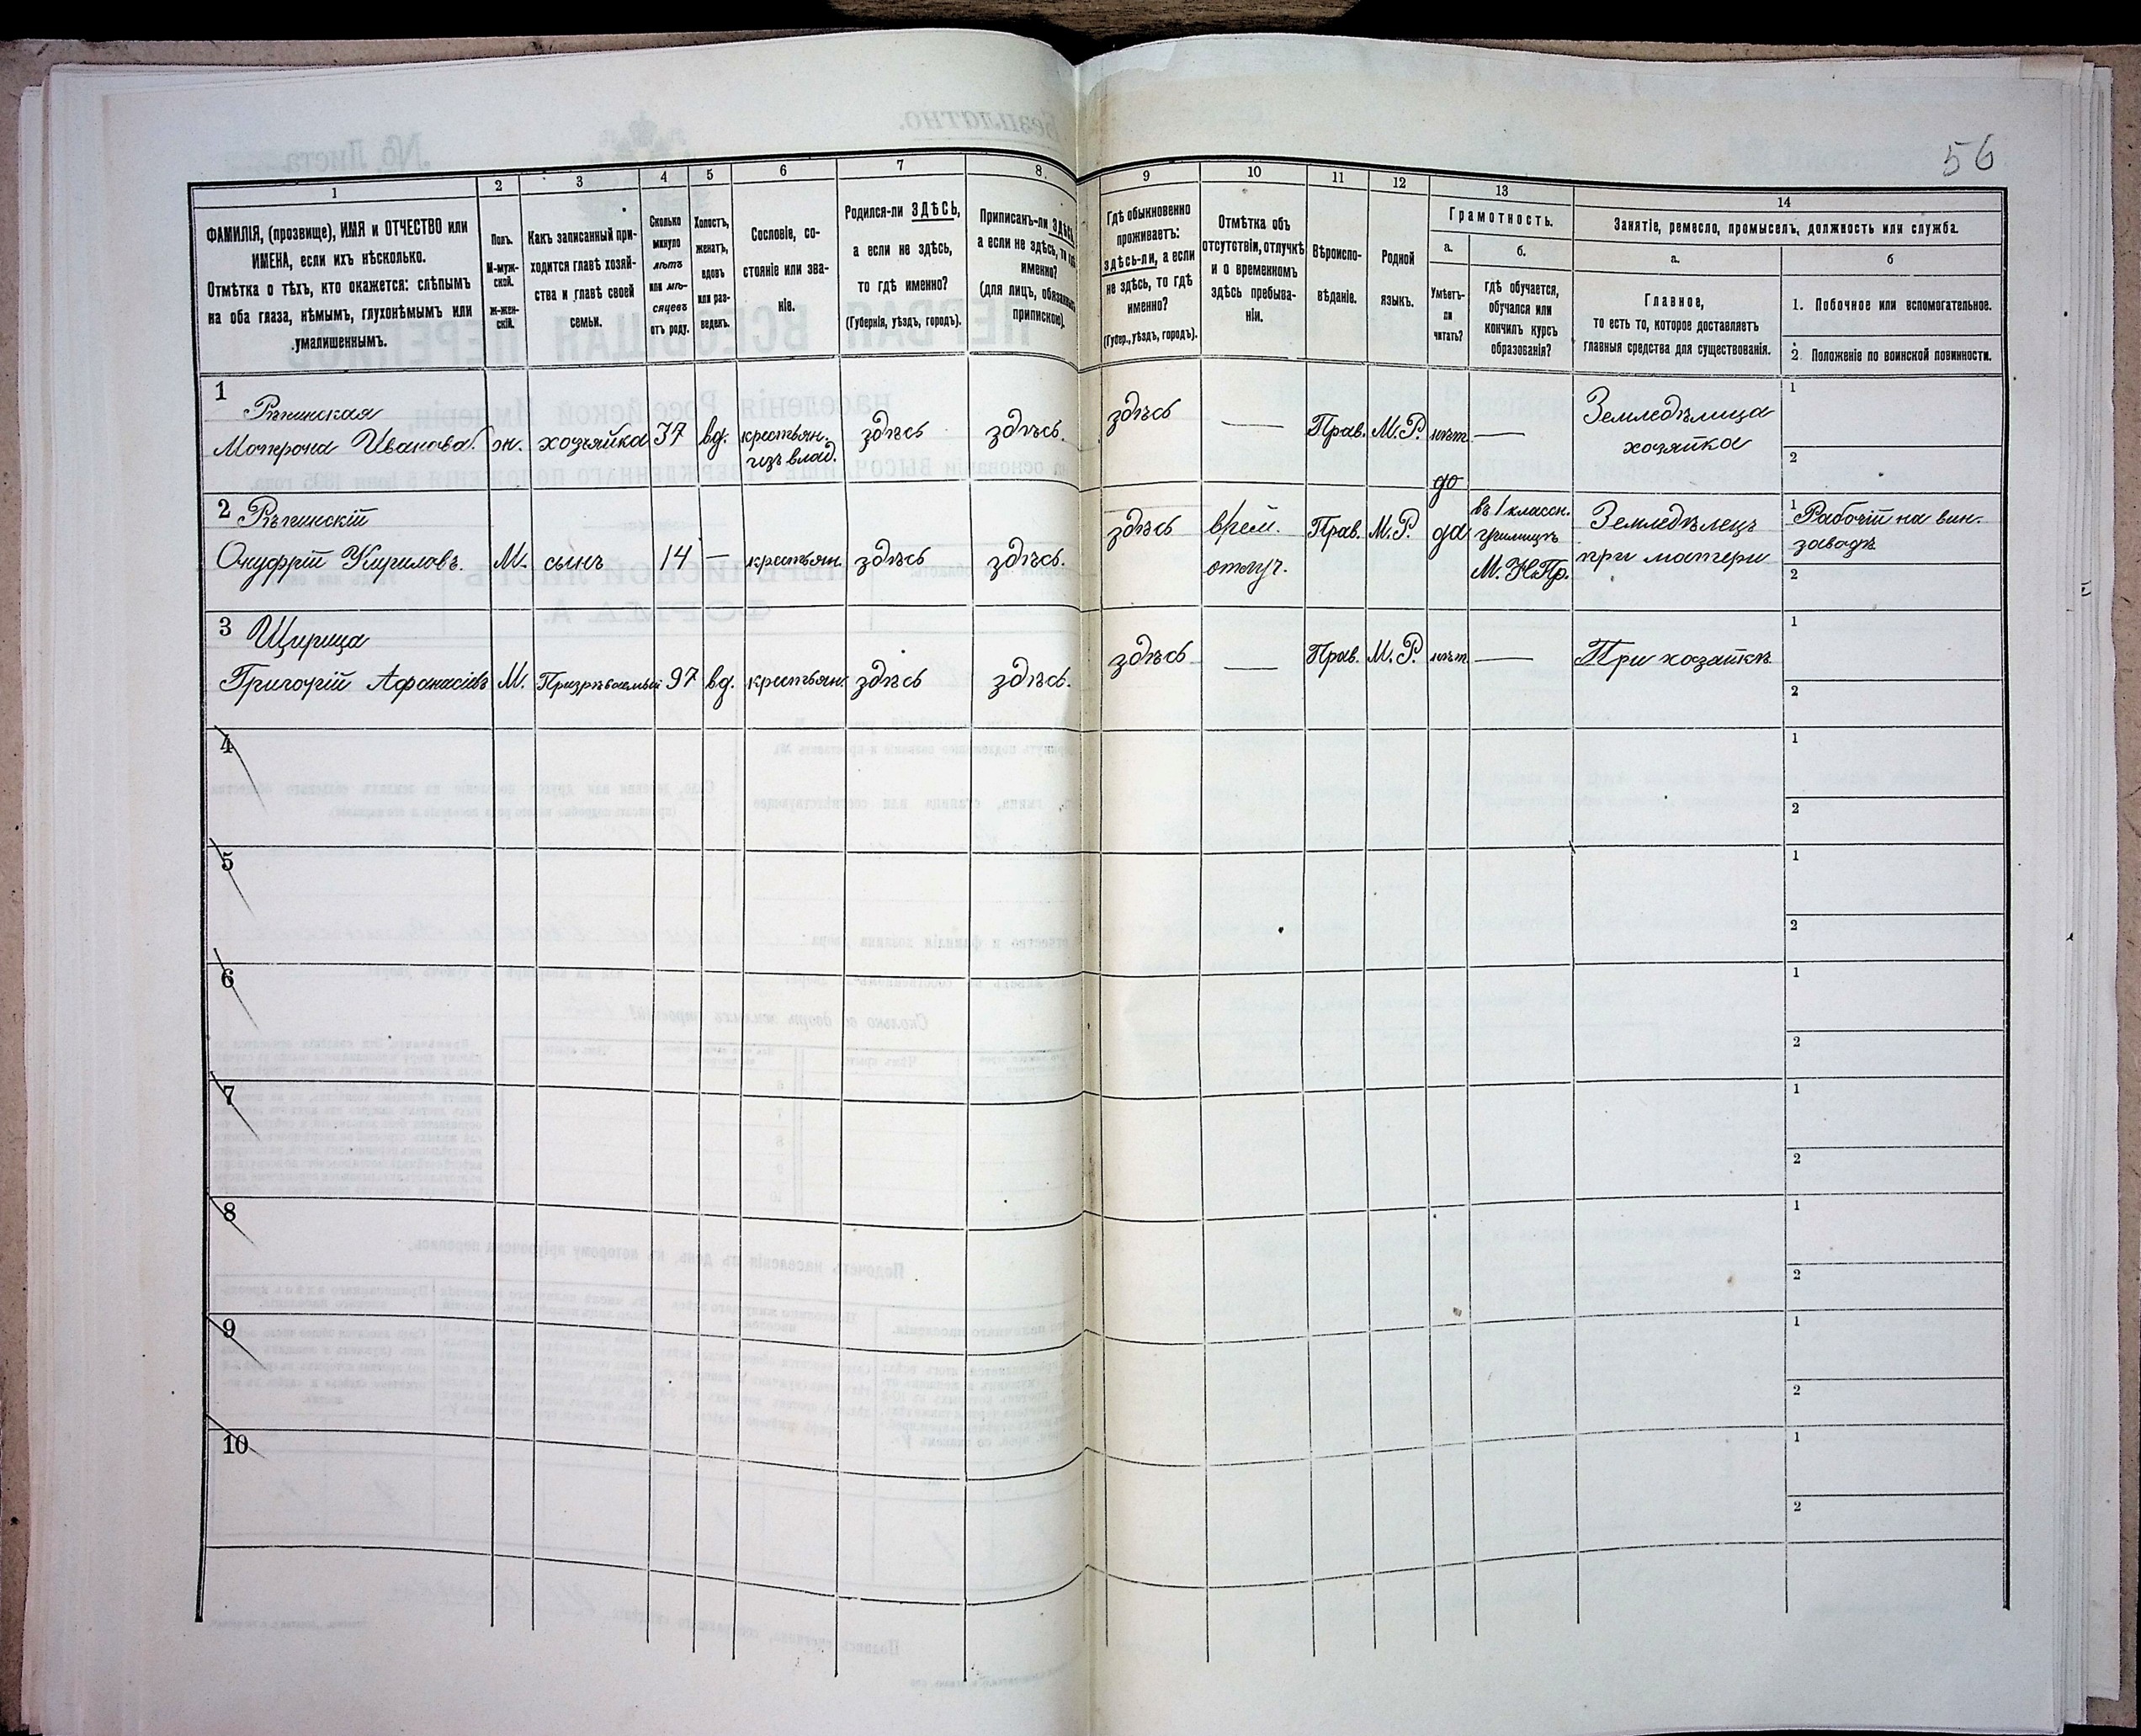 56
1
2
3
4
5
6
7
8
9
10
11
12
13
14
ФАМИЛІЯ, (прозвище), ИМЯ и ОТЧЕСТВО или
ИМЕНА, если ихъ нѣсколько.
Отмѣтка о тѣхъ, кто окажется: слѣпымъ
на оба глаза, нѣмымъ, глухонѣмымъ или
умалишеннымъ.
Полъ.
М-муж-
ской.
Ж-жен-
скій.
Какъ записанный при-
ходится главѣ хозяй-
ства и главѣ своей
семьи.
Сколько
минуло
лѣтъ
или мѣ-
сяцевъ
отъ роду.
Холостъ,
женатъ,
вдовъ
или раз-
веденъ.
Сословіе, со-
стояніе или зва-
ніе.
Родился-ли ЗДѢСЬ,
а если не здѣсь,
то гдѣ именно?
(Губернія, уѣздъ, городъ).
Приписанъ-ли ЗДѢСЬ,
а если не здѣсь, то гдѣ
именно?
(для лицъ, обязанныхъ
припискою).
Гдѣ обыкновенно
проживаетъ:
здѣсь-ли, а если
не здѣсь, то гдѣ
именно?
(Губер., уѣздъ, городъ).
Отмѣтка объ
отсутствіи, отлучкѣ
и о временномъ
здѣсь пребыва-
ніи.
Вѣроиспо-
вѣданіе.
Родной
языкъ.
Грамотность.
а.
б.
Умѣетъ-
ли
читать?
гдѣ обучается,
обучался или
кончилъ курсъ
образованія?
Занятіе, ремесло, промыселъ, должность или служба.
а.
б
Главное,
то есть то, которое доставляетъ
главныя средства для существованія.
1. Побочное или вспомогательное.
2. Положеніе по воинской повинности.
1
Рѣпинская
Матрона Иванова. ж. хозяйка 37 вд. крестьян. здѣсь здѣсь.
изъ влад.
здѣсь — Прав. М.Р. нѣтъ —
Земледѣлица
хозяйка
1
2
до
2 Рѣпинскій
Онуфрій Кириловъ. М. сынъ 14 — крестьян. здѣсь здѣсь.
здѣсь врем.
отлуч.
Прав. М.Р. да
въ 1 классн.
училищѣ
М. Н. Пр.
Земледѣлецъ
при матери
1 Рабочій на вин.
заводѣ
2
3 Щирица
Григорій Афанасіевъ М. Призрѣваемый 97 вд. крестьян. здѣсь здѣсь.
здѣсь — Прав. М.Р. нѣтъ — При хозяйкѣ
1
2
4
1
2
5
1
2
6
1
2
7
1
2
8
1
2
9
1
2
10
1
2